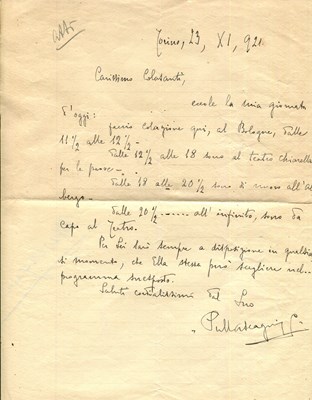 Torino, 23, XI, 921
Carissimo Colasanti,
eccole la mia giornata
d'oggi:
faccio colazione qui, al Bologne, dalle
11 ½ alle 12 ½ -
Dalle 12 ½ alle 18 sono al teatro Chiarella
per le prove -
Dalle 18 alle 20 ½ sono di nuovo all'Al
bergo -
Dalle 20 ½ ....... all'infinito, sono da
capo al Teatro.
Per Lei sarò sempre a disposizione in qualsia
si momento, che Ella stessa può scegliere nel
programma suesposto.
Saluti cordialissimi dal Suo
PMascagni